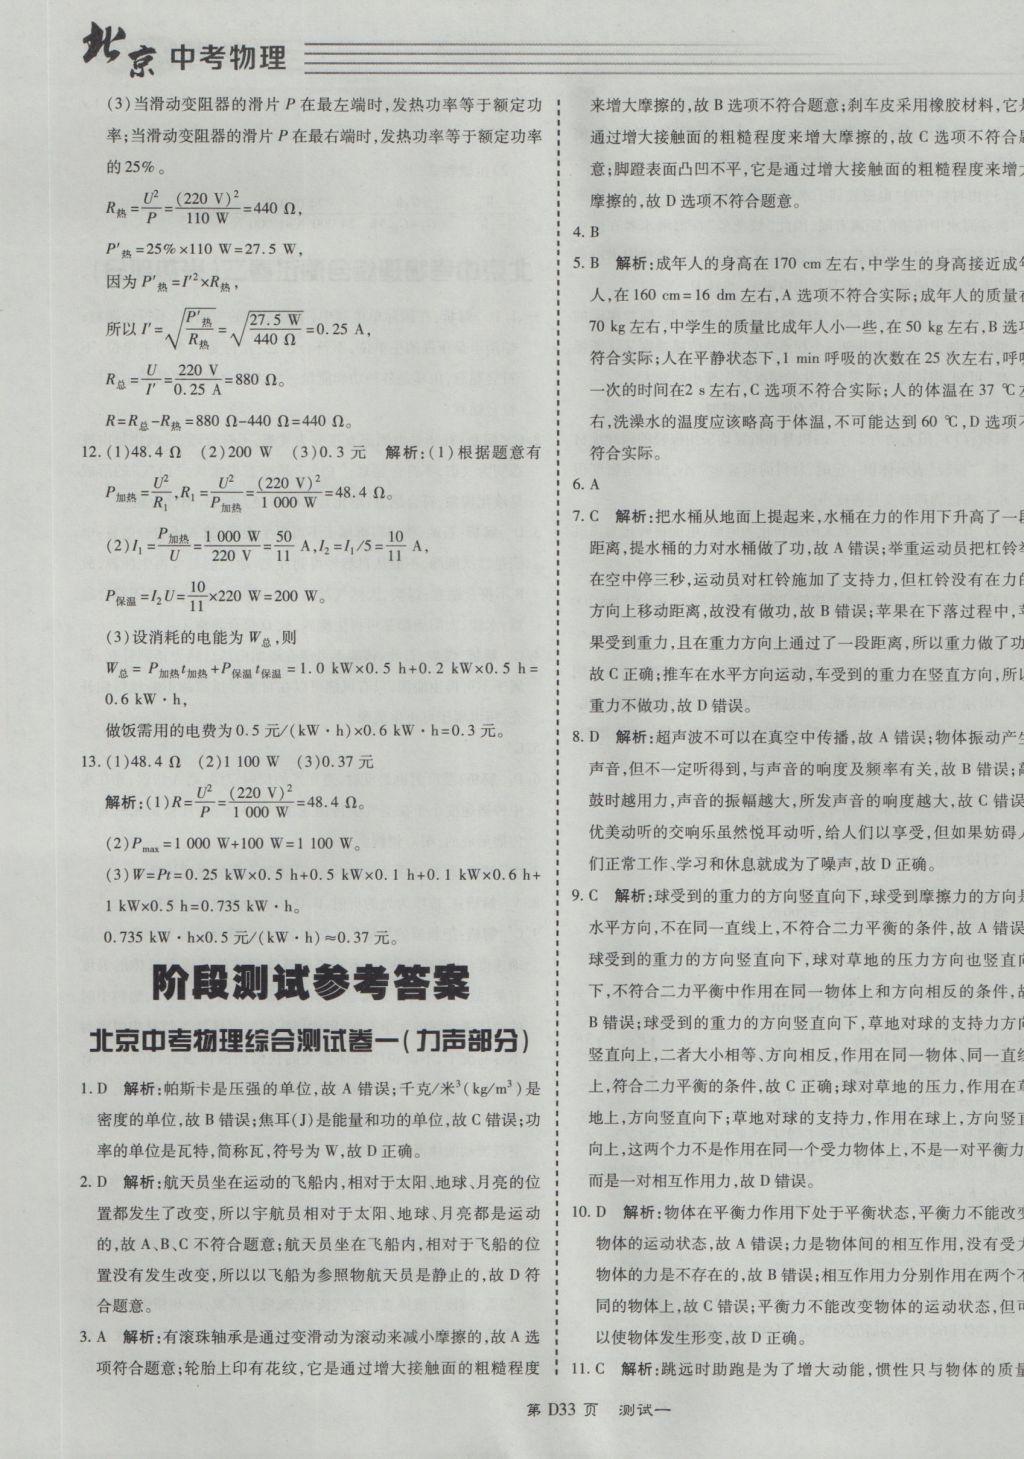 北京 中考物理
(3)当滑动变阻器的滑片 P 在最左端时,发热功率等于额定功
率;当滑动变阻器的滑片 P 在最右端时,发热功率等于额定功率
的25%。
R热=U²/P=(220 V)²/110 W=440 Ω,
P′热=25%×110 W=27.5 W,
因为 P′热=I′²×R热,
所以 I′=√(P′热/R热)=√(27.5 W/440 Ω)=0.25 A,
R总=U/I′=220 V/0.25 A=880 Ω。
R=R总-R热=880 Ω-440 Ω=440 Ω。
12. (1)48.4 Ω (2)200 W (3)0.3 元 解析:(1)根据题意有
P加热=U²/R₁,R₁=U²/P加热=(220 V)²/1 000 W=48.4 Ω。
(2)I₁=P加热/U=1 000 W/220 V=50/11 A,I₂=I₁/5=10/11 A,
P保温=I₂U=10/11×220 W=200 W。
(3)设消耗的电能为 W总,则
W总= P加热t加热+P保温t保温=1.0 kW×0.5 h+0.2 kW×0.5 h=
0.6 kW·h,
做饭需用的电费为0.5 元/(kW·h)×0.6 kW·h=0.3 元。
13. (1)48.4 Ω (2)1 100 W (3)0.37 元
解析:(1)R=U²/P=(220 V)²/1 000 W=48.4 Ω。
(2)Pmax=1 000 W+100 W=1 100 W。
(3)W=Pt=0.25 kW×0.5 h+0.5 kW×0.1 h+0.1 kW×0.6 h+
1 kW×0.5 h=0.735 kW·h。
0.735 kW·h×0.5 元/(kW·h)≈0.37 元。
阶段测试参考答案
北京中考物理综合测试卷一(力声部分)
1. D 解析:帕斯卡是压强的单位,故 A 错误;千克/米³(kg/m³)是
密度的单位,故 B 错误;焦耳(J)是能量和功的单位,故 C 错误;功
率的单位是瓦特,简称瓦,符号为 W,故 D 正确。
2. D 解析:航天员坐在运动的飞船内,相对于太阳、地球、月亮的位
置都发生了改变,所以宇航员相对于太阳、地球、月亮都是运动
的,故 A、B、C 不符合题意;航天员坐在飞船内,相对于飞船的位
置没有发生改变,所以以飞船为参照物航天员是静止的,故 D 符
合题意。
3. A 解析:有滚珠轴承是通过变滑动为滚动来减小摩擦的,故 A 选
项符合题意;轮胎上印有花纹,它是通过增大接触面的粗糙程度
来增大摩擦的,故 B 选项不符合题意;刹车皮采用橡胶材料,它是
通过增大接触面的粗糙程度来增大摩擦的,故 C 选项不符合题
意;脚蹬表面凸凹不平,它是通过增大接触面的粗糙程度来增大
摩擦的,故 D 选项不符合题意。
4. B
5. B 解析:成年人的身高在 170 cm 左右,中学生的身高接近成年
人,在 160 cm=16 dm 左右,A 选项不符合实际;成年人的质量在
70 kg 左右,中学生的质量比成年人小一些,在 50 kg 左右,B 选项
符合实际;人在平静状态下,1 min 呼吸的次数在 25 次左右,呼吸
一次的时间在2 s 左右,C 选项不符合实际;人的体温在 37 ℃左
右,洗澡水的温度应该略高于体温,不可能达到 60 ℃,D 选项不
符合实际。
6. A
7. C 解析:把水桶从地面上提起来,水桶在力的作用下升高了一段
距离,提水桶的力对水桶做了功,故 A 错误;举重运动员把杠铃举
在空中停三秒,运动员对杠铃施加了支持力,但杠铃没有在力的
方向上移动距离,故没有做功,故 B 错误;苹果在下落过程中,苹
果受到重力,且在重力方向上通过了一段距离,所以重力做了功
故 C 正确;推车在水平方向运动,车受到的重力在竖直方向,所以
重力不做功,故 D 错误。
8. D 解析:超声波不可以在真空中传播,故 A 错误;物体振动产生
声音,但不一定听得到,与声音的响度及频率有关,故 B 错误;敲
鼓时越用力,声音的振幅越大,所发声音的响度越大,故 C 错误
优美动听的交响乐虽然悦耳动听,给人们以享受,但如果妨碍人
们正常工作、学习和休息就成为了噪声,故 D 正确。
9. C 解析:球受到的重力的方向竖直向下,球受到摩擦力的方向是
水平方向,不在同一直线上,不符合二力平衡的条件,故 A 错误
球受到的重力的方向竖直向下,球对草地的压力方向也竖直向
下,不符合二力平衡中作用在同一物体上和方向相反的条件,故
B 错误;球受到的重力的方向竖直向下,草地对球的支持力方向
竖直向上,二者大小相等、方向相反,作用在同一物体、同一直线
上,符合二力平衡的条件,故 C 正确;球对草地的压力,作用在草
地上,方向竖直向下;草地对球的支持力,作用在球上,方向竖直
向上,这两个力不是作用在同一个受力物体上,不是一对平衡力
而是一对相互作用力,故 D 错误。
10. D 解析:物体在平衡力作用下处于平衡状态,平衡力不能改变
物体的运动状态,故 A 错误;力是物体间的相互作用,没有受力
物体的力是不存在的,故 B 错误;相互作用力分别作用在两个不
同的物体上,故 C 错误;平衡力不能改变物体的运动状态,但可
以使物体发生形变,故 D 正确。
11. C 解析:跳远时助跑是为了增大动能,惯性只与物体的质量
第 D33 页 测试一